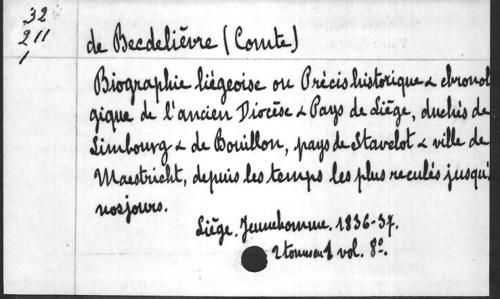 32
211
1
de Becdelièvre (Comte)
Biographie liégeoise ou Précis historique & chronol
gique de l'ancien Diocèse & Pays de Liége, duchés de
Limbourg & de Bouillon, pays de Stavelot & ville de
Maestricht, depuis les temps les plus reculés jusqu'
nos jours.
Liége. Jeunehomme. 1836-37.
2 tomes en 1 vol. 8º.